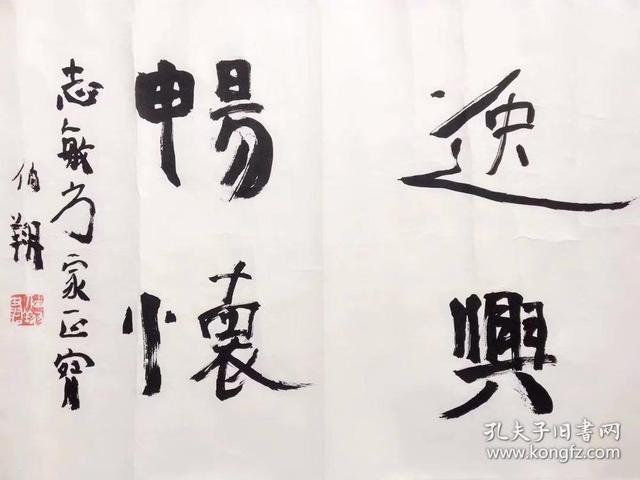 逸興
暢懷
志敏方家正
伯翔
孔夫子旧书网
www.kongfz.com